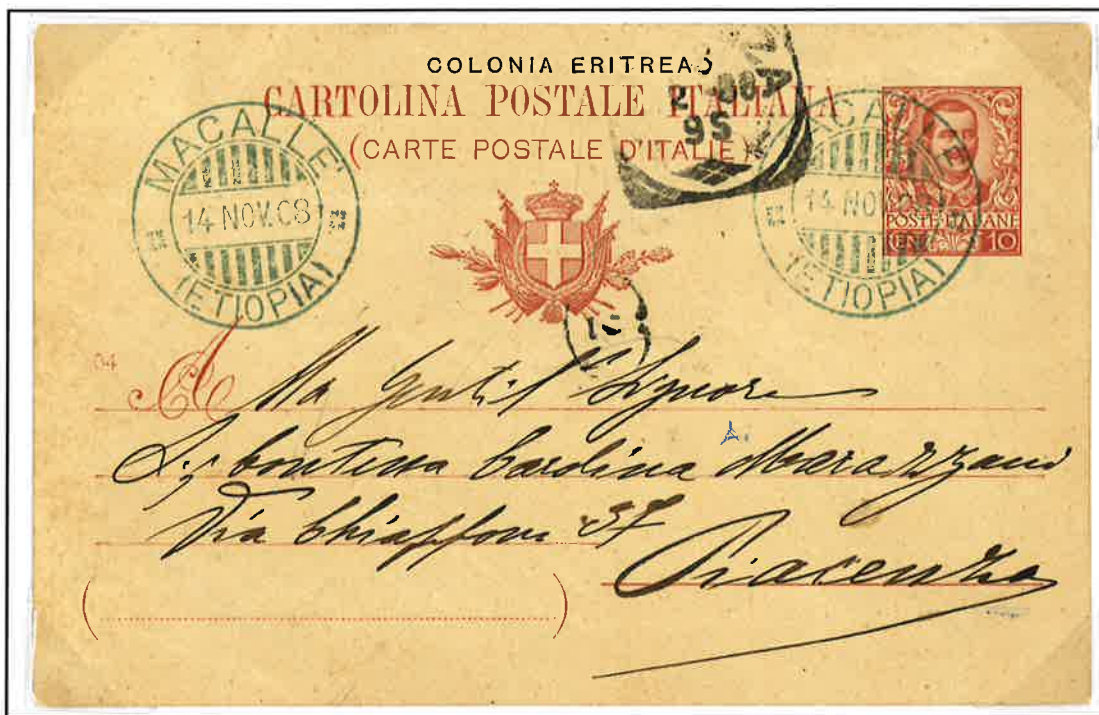 COLONIA ERITREA
CARTOLINA POSTALE ITALIANA
(CARTE POSTALE D'ITALIE)
MACALLE'
14 NOV. 08
(ETIOPIA)
ZA
95
MACALLE'
14 NOV. 08
(ETIOPIA)
POSTE ITALIANE
CENT. 10
04
Alla Gentil Signora
Sig Contessa Carolina A. Marazzani
Via Chiapponi 37
Piacenza